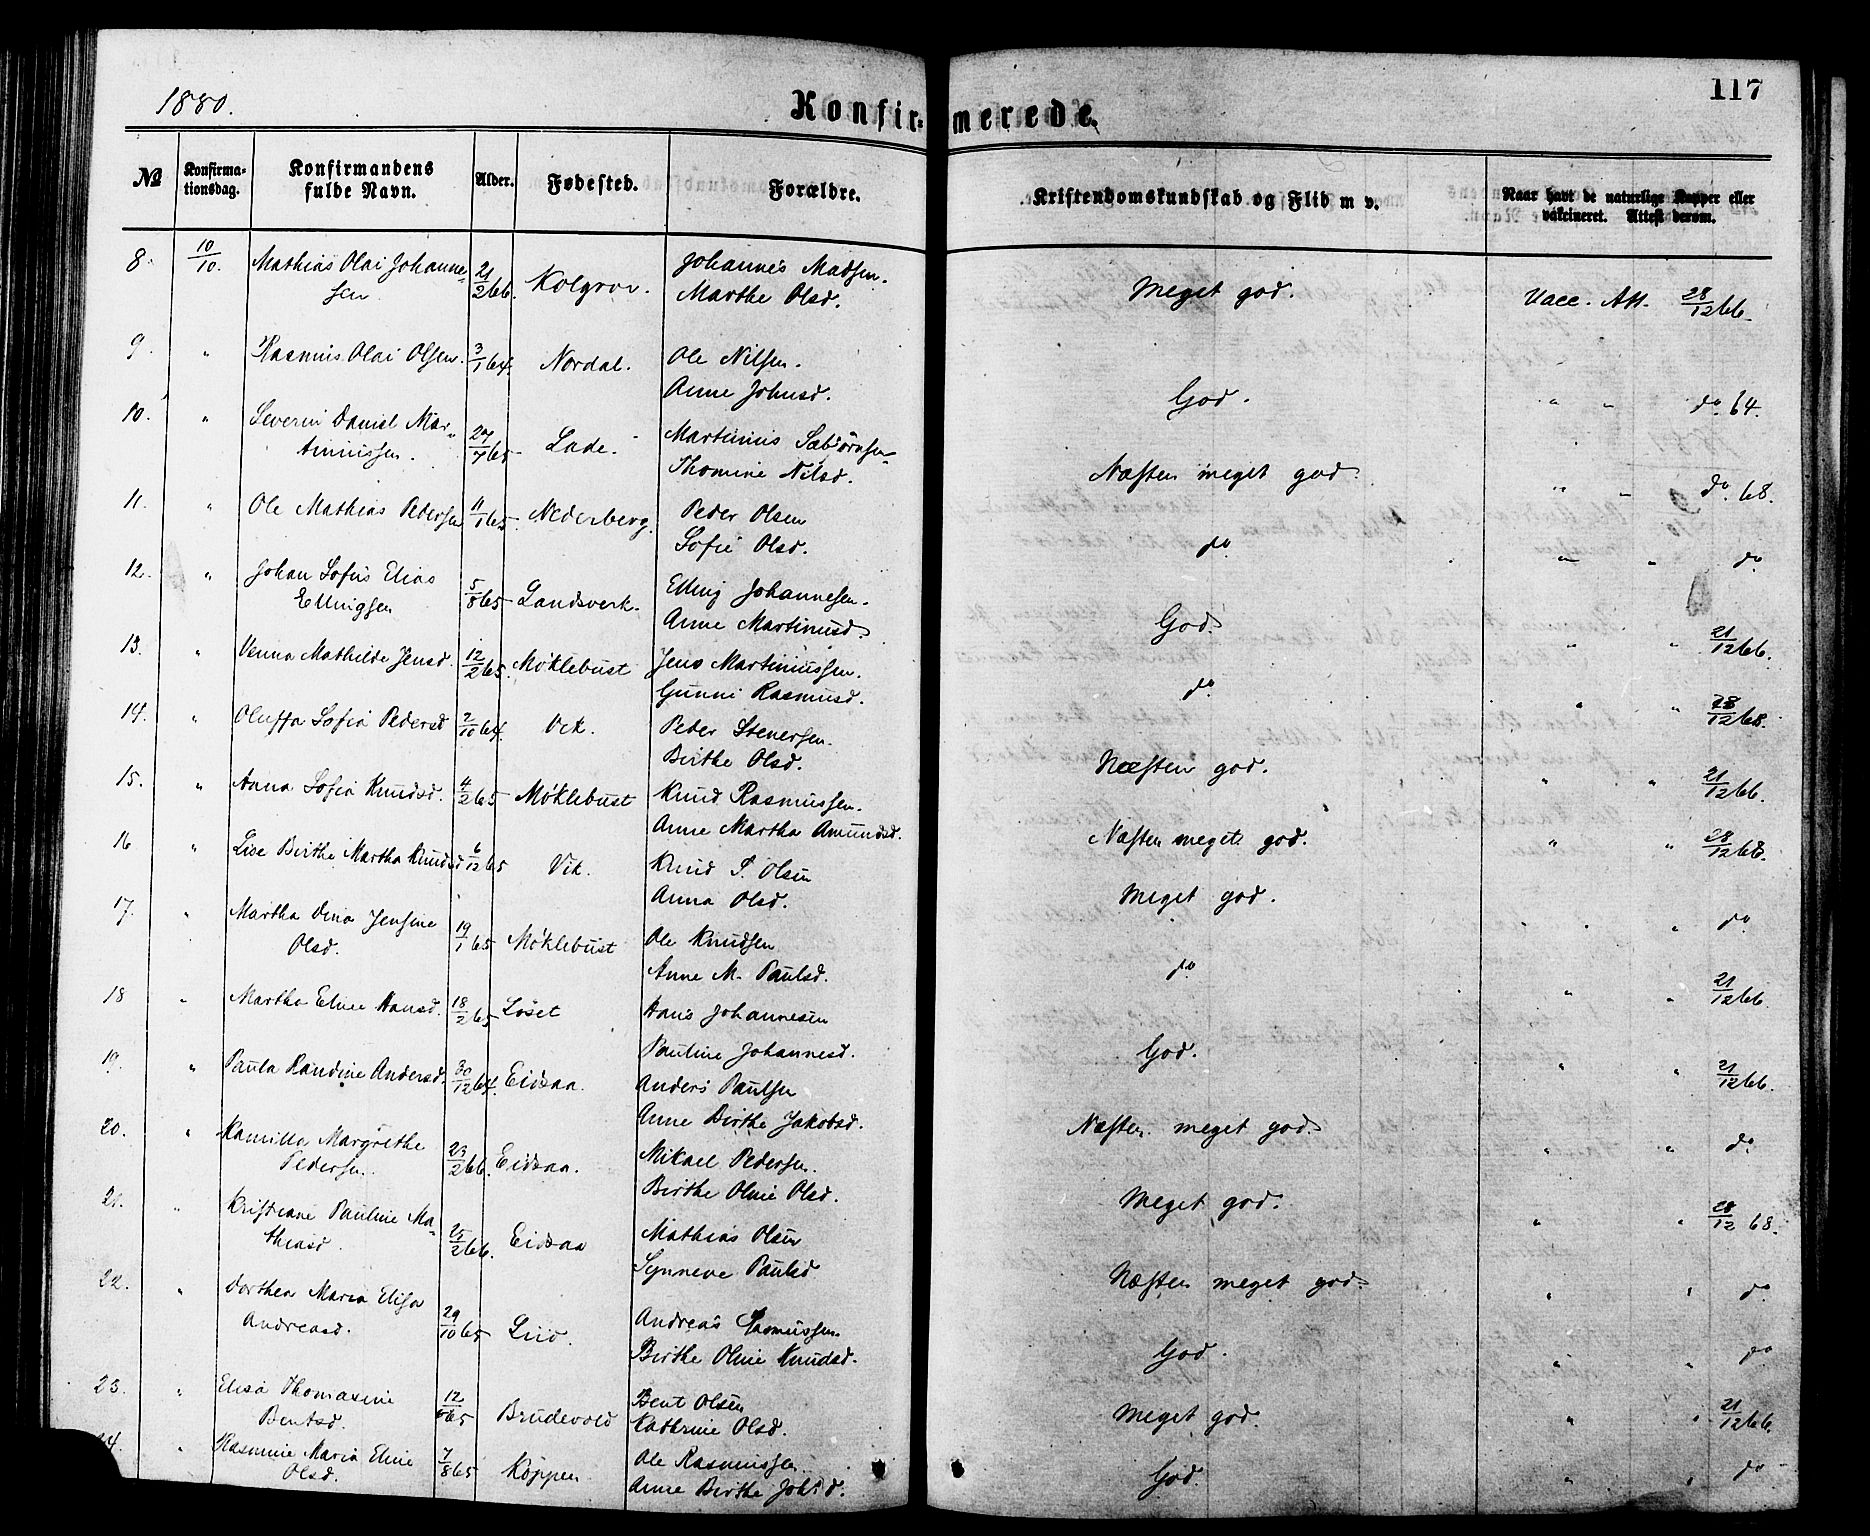 1880.
Konfirmerede.
117
No
Konfirma-
tionsdag.
Konfirmandens
fulde Navn.
Alder.
Fødested.
Forældre.
Kristendomskundskab og Flid m v.
Naar havt de naturlige Kopper eller
vakcineret. Attest derom.
8. 10/10. Mathias Olai Johanne= 21/2 66. Kolgrov. Johannes Madsen. Meget god. Vacc. Att. 28/12 66.
sen. Marthe Olsd.
9. " Rasmus Olai Olsen. 3/1 64. Nordal. Ole Nilsen. God. " " do. 64.
Anne Johnsd.
10. " Severin Daniel Mar= 27/7 65 Lade. Martinus Sæbjørnsen Næsten meget god. " " do. 68.
tinussen. Thomine Nilsd.
11. " Ole Mathias Pedersen 11/1 65. Nederberg. Peder Olsen do " " do
Sofie Olsd.
12. " Johan Sofus Elias 5/8 65 Landsverk. Elling Johannesen. God. " " 21/12 66.
Ellingsen Anne Martinusd.
13. " Venna Mathilde Jensd. 12/2 65. Møklebust Jens Martinussen. do " " 28/12 68.
Gunni Rasmusd.
14. " Oluffa Sofia Pedersd 2/10 64. Vik. Peder Stenersen. Næsten god. " " 21/12 66.
Birthe Olsd.
15. " Anna Sofia Knudsd. 4/2 65 Møklebust Knud Rasmussen. Næsten meget god. " " 28/12 68.
Anne Martha Amundsd.
16 " Lise Birthe Martha Knudsd 6/12 65 Vik. Knud P. Olsen Meget god. " " do
Anna Olsd.
17. " Martha Dina Jensine 19/1 65 Møklebust Ole Knudsen do " " 21/12 66.
Olsd. Anne M. Paulsd.
18 " Martha Eline Hansd. 18/2 65 Løset Hans Johannesen God. " " 21/12 66.
Pauline Johannesd.
19. " Paula Randine Andersd. 30/12 64. Eidsaa. Anders Paulsen Næsten meget god. " " do
Anne Birthe Jakobsd.
20. " Kamilla Margrethe 23/2 66. Eidsaa. Mikael Pedersen. Meget god. " " 28/12 68.
Pedersen. Birthe Oline Olsd.
21. " Kristiane Pauline Ma= 25/2 66. Eidsaa Mathias Olsen Næsten meget god. " " do
thiasd. Synneve Paulsd
22. " Dorthea Maria Elisa 29/10 65 Liid. Andreas Rasmussen God. " " do
Andreasd. Birthe Oline Knudsd.
23. " Elisa Thomasine 12/6 65 Brudevold Bent Olsen Meget god. " " 21/12 66.
Bentsd. Kathrine Olsd.
24. " Rasmine Maria Eline 7/8 65 Koppen Ole Rasmussen God. " " do
Olsd. Anne Birthe Johsd.